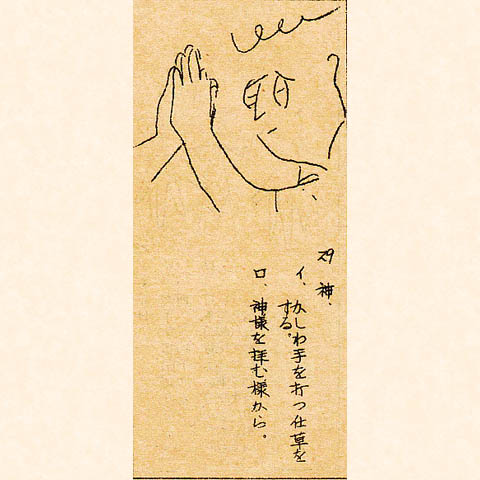 神、
イ、かしわ手を打つ仕草を
する。
ロ、神様を拝む様から。